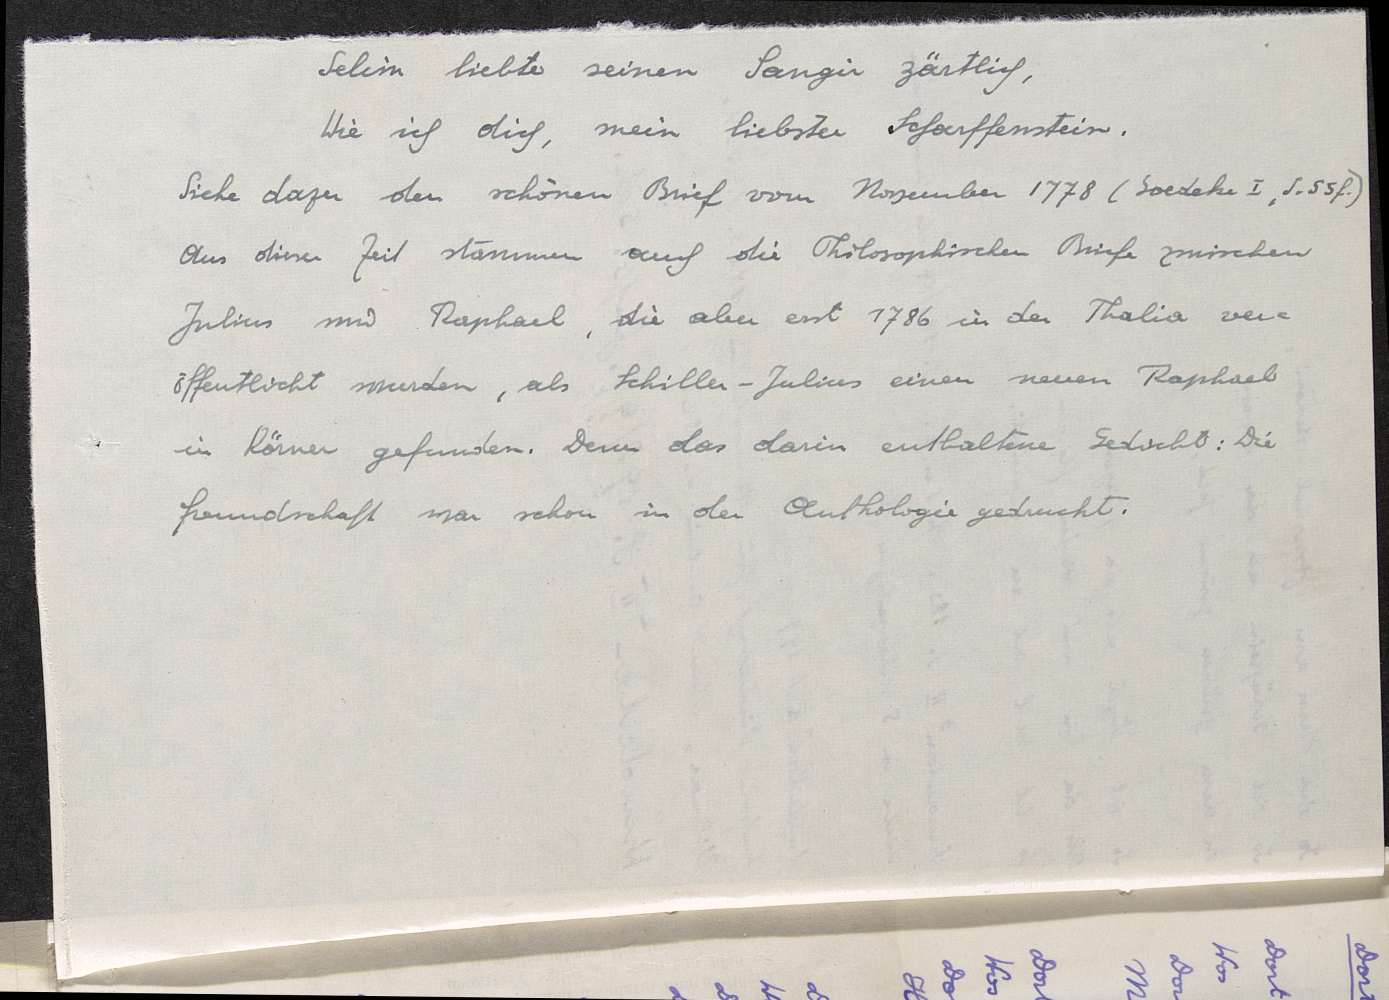 Selim liebte seinen Sangir zärtlich,
Wie ich dich, mein liebster Scharffenstein.
Siehe dazu den schönen Brief vom November 1778 (Goedeke I, S. 55f.)
Aus dieser Zeit stammen auch die Philosophischen Briefe zwischen
Julius und Raphael, die aber erst 1786 in der Thalia ver=
öffentlicht wurden, als Schiller-Julius einen neuen Raphael
in Körner gefunden. Denn das darin enthaltene Gedicht: Die
Freundschaft war schon in der Anthologie gedruckt.